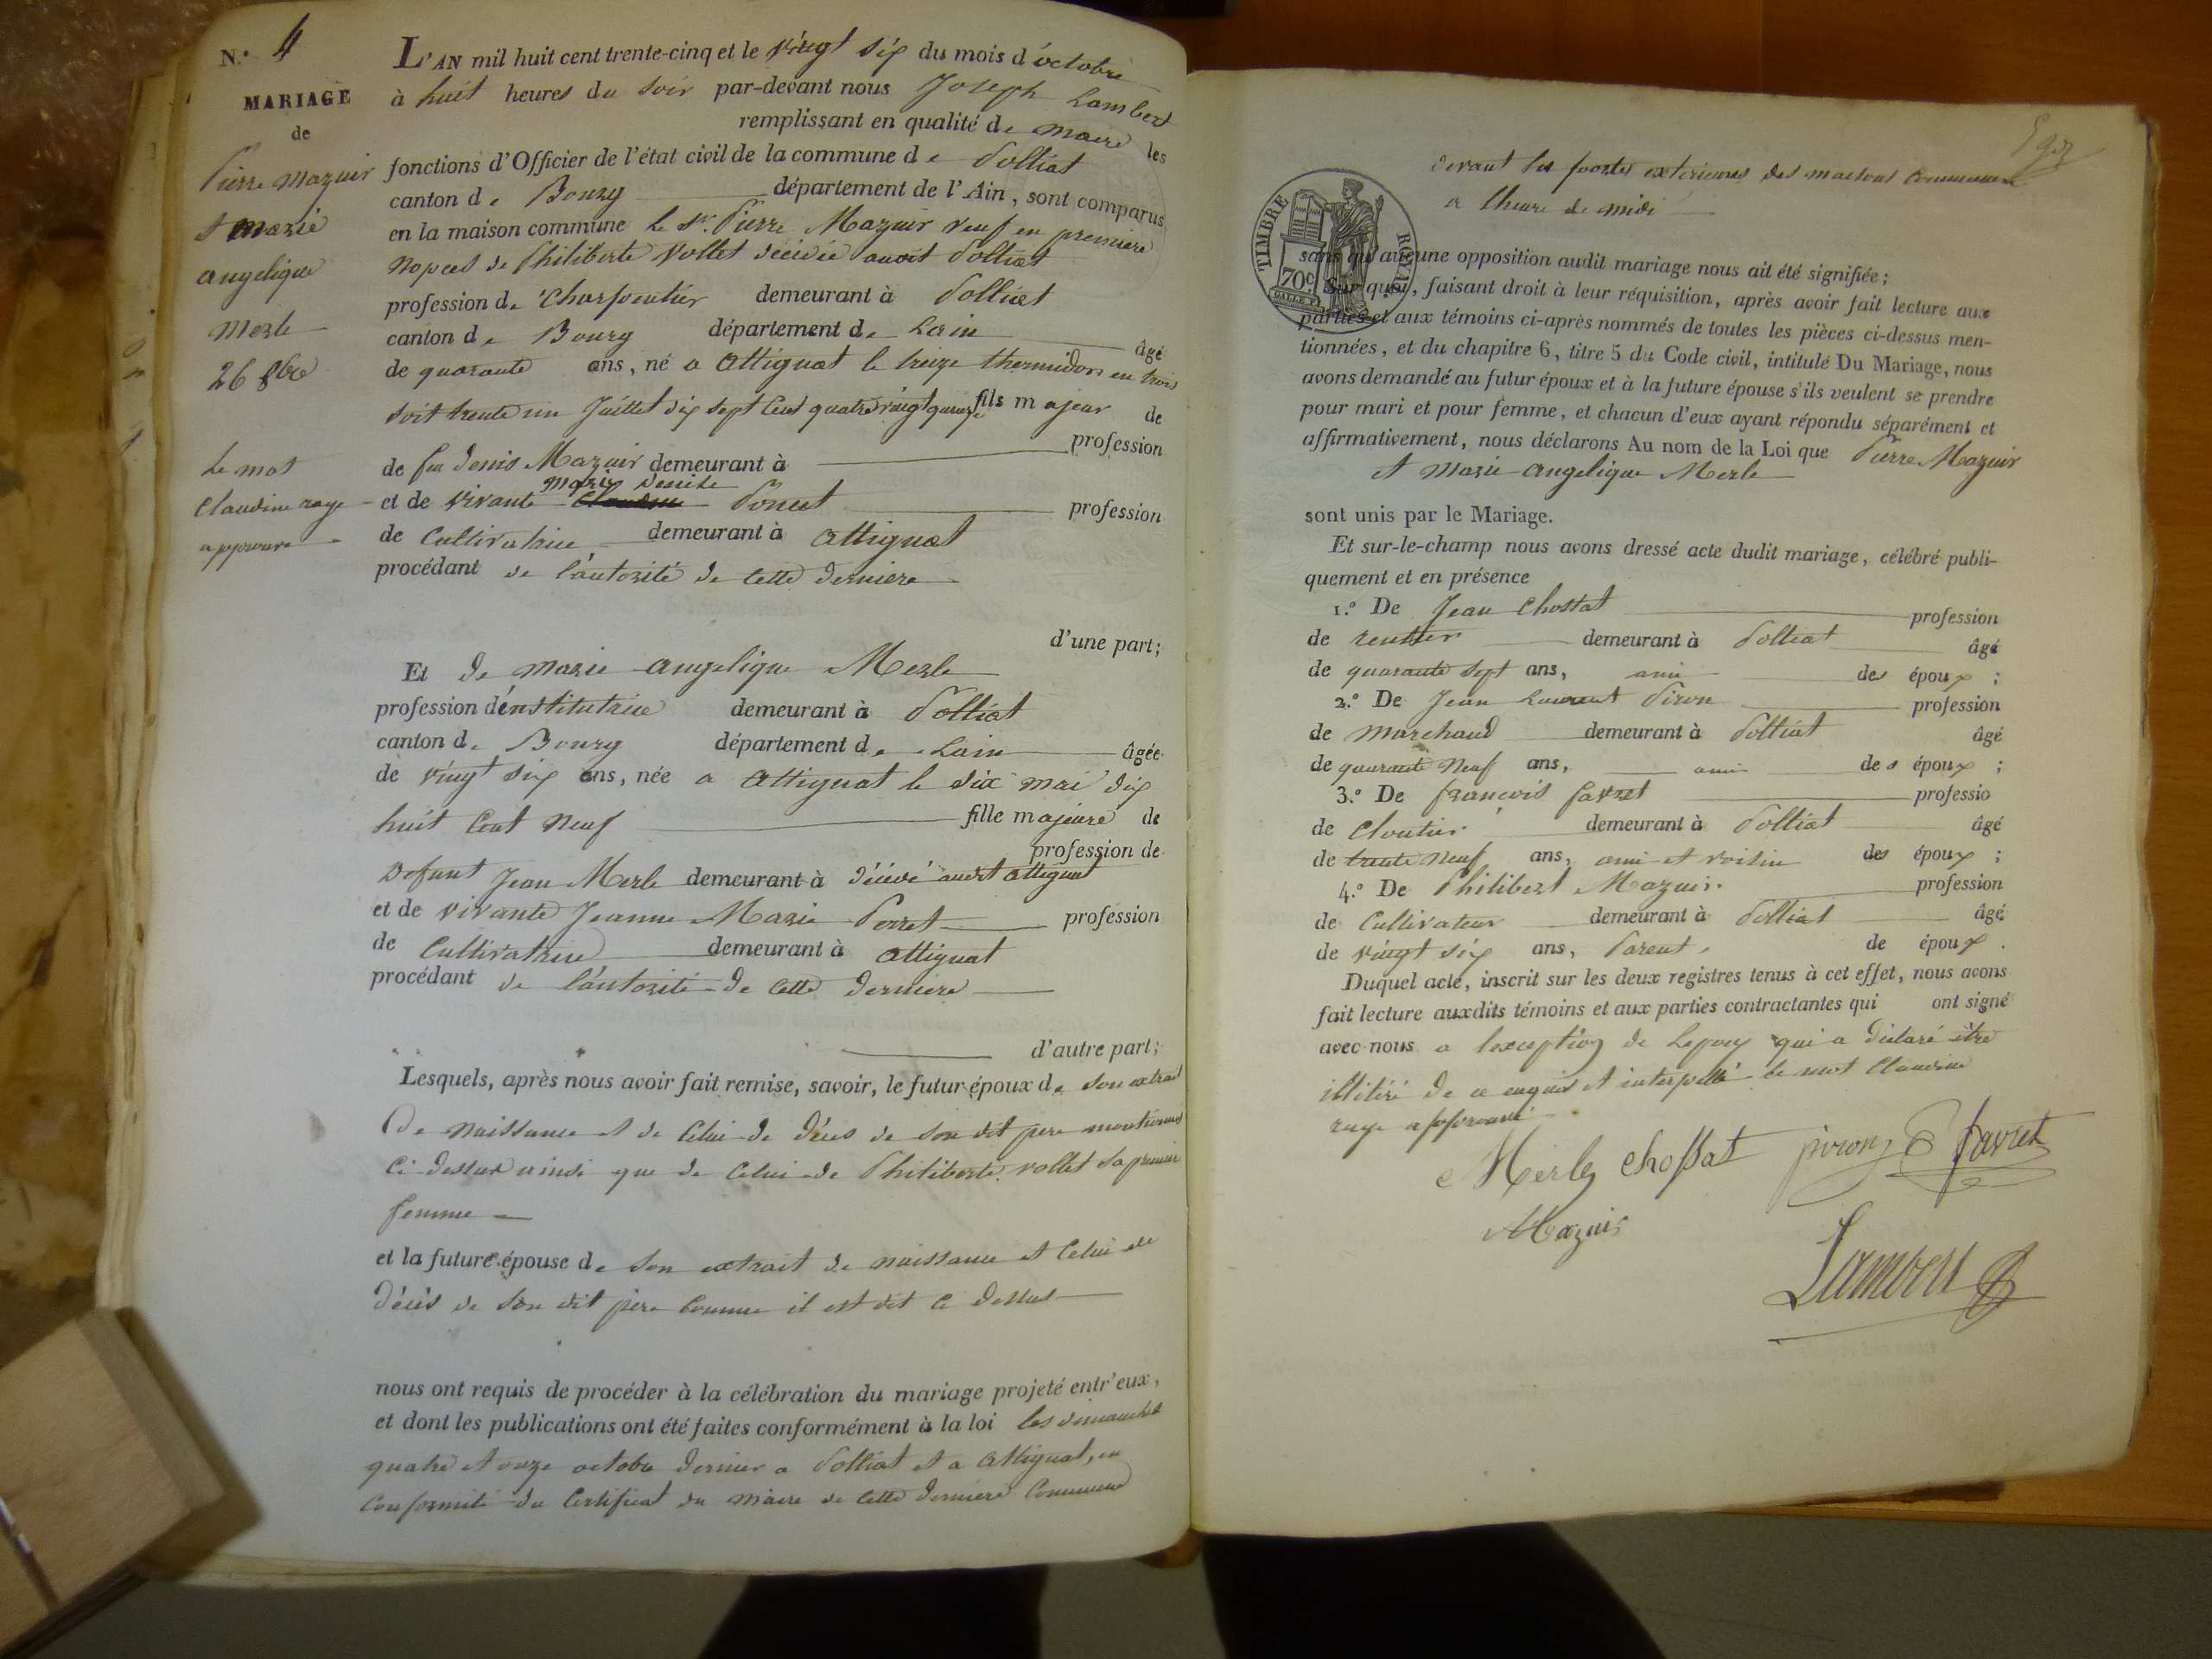 N.° 4
MARIAGE
de
Pierre Mazuir
et marie
angelique
Merle
26 8bre
Le mot
Claudine raye
approuvé
L'AN mil huit cent trente-cinq et le vingt six du mois d'octobre
à huit heures du soir par-devant nous Joseph Lambert
remplissant en qualité de maire les
fonctions d'Officier de l'état civil de la commune de Polliat
canton de Bourg département de l'Ain, sont comparus
en la maison commune le Sr. Pierre Mazuir veuf en premiere
nopces de Philiberte Vollet décédée audit Polliat
profession de Charpentier demeurant à Polliat
canton de Bourg département de Lain âgé
de quarante ans, né a Attignat le treize thermidor en trois
soit trente un Juillet dix sept cent quatre vingt quinze fils majeur de
profession
de feu Denis Mazuir demeurant à
marie Denise
et de vivante Claudine Poncet profession
de Cultivatrice demeurant à Attignat
procédant de l'autorité de cette derniere
d'une part;
Et de marie angelique Merle
profession d'institutrice demeurant à Polliat
canton de Bourg département de Lain âgée
de vingt six ans, née a Attignat le dix mai dix
huit Cent neuf fille majeure de
profession de
Defunt Jean Merle demeurant à décédé audit Attignat
et de vivante Jeanne Marie Perret profession
de Cultivatrice demeurant à Attignat
procédant de l'autorité de cette derniere
d'autre part;
Lesquels, après nous avoir fait remise, savoir, le futur époux de son extrait
De naissance et de Celui de décès de son dit pere mentionné
Ci-dessus ainsi que de Celui de Philiberte vollet sa premiere
femme
et la future épouse de son extrait de naissance et Celui de
décès de son dit père Comme il est dit Ci dessus
nous ont requis de procéder à la célébration du mariage projeté entr'eux,
et dont les publications ont été faites conformément à la loi les dimanches
quatre et onze octobre dernier a Polliat et a Attignat, en
Conformité du Certificat du maire de cette derniere Commune
devant les portes exterieures des maisons communes
a lheure de midi
TIMBRE ROYAL
70c
sans qu'aucune opposition audit mariage nous ait été signifiée;
Sur quoi, faisant droit à leur réquisition, après avoir fait lecture aux
parties et aux témoins ci-après nommés de toutes les pièces ci-dessus men-
tionnées, et du chapitre 6, titre 5 du Code civil, intitulé Du Mariage, nous
avons demandé au futur époux et à la future épouse s'ils veulent se prendre
pour mari et pour femme, et chacun d'eux ayant répondu séparément et
affirmativement, nous déclarons Au nom de la Loi que Pierre Mazuir
et Marie angelique Merle
sont unis par le Mariage.
Et sur-le-champ nous avons dressé acte dudit mariage, célébré publi-
quement et en présence
1.° De Jean Chossat profession
de rentier demeurant à Polliat âgé
de quarante sept ans, ami des époux ;
2.° De Jean Laurent Piron profession
de marchand demeurant à Polliat âgé
de quarante neuf ans, ami des époux ;
3.° De françois favret professio
de Cloutier demeurant à Polliat âgé
de trente neuf ans, ami et voisin des époux ;
4.° De Philibert Mazuir profession
de Cultivateur demeurant à Polliat âgé
de vingt six ans, Parent de époux .
Duquel acte, inscrit sur les deux registres tenus à cet effet, nous avons
fait lecture auxdits témoins et aux parties contractantes qui ont signé
avec nous a lexception de Lepoux qui a déclaré être
illitéré de ce enquis et interpellé le mot Claudine
raye approuvé
Merle chossat piron favret
Mazuir
Lambert